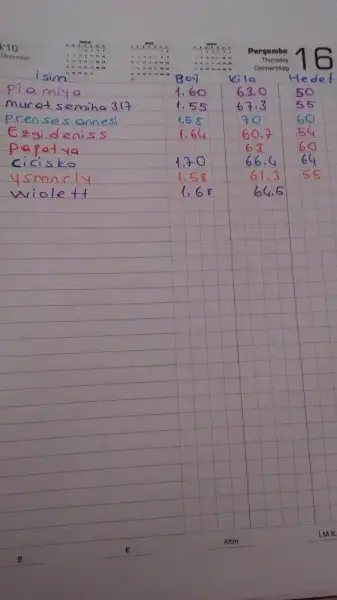 Perşembe 16
Thursday
Donnerstag
isim Boy Kilo Hedef
Piamiya 1.60 63.0 50
murat semiha 317 1.55 67.3 55
prenses annesi 1.58 70 60
Ezgi deniss 1.64 60.7 54
papatya 63 60
cicisko 1.70 66.4 64
ysmnrly 1.58 61.3 55
wiolett 1.68 64.5
S E Atdn İ.M.K